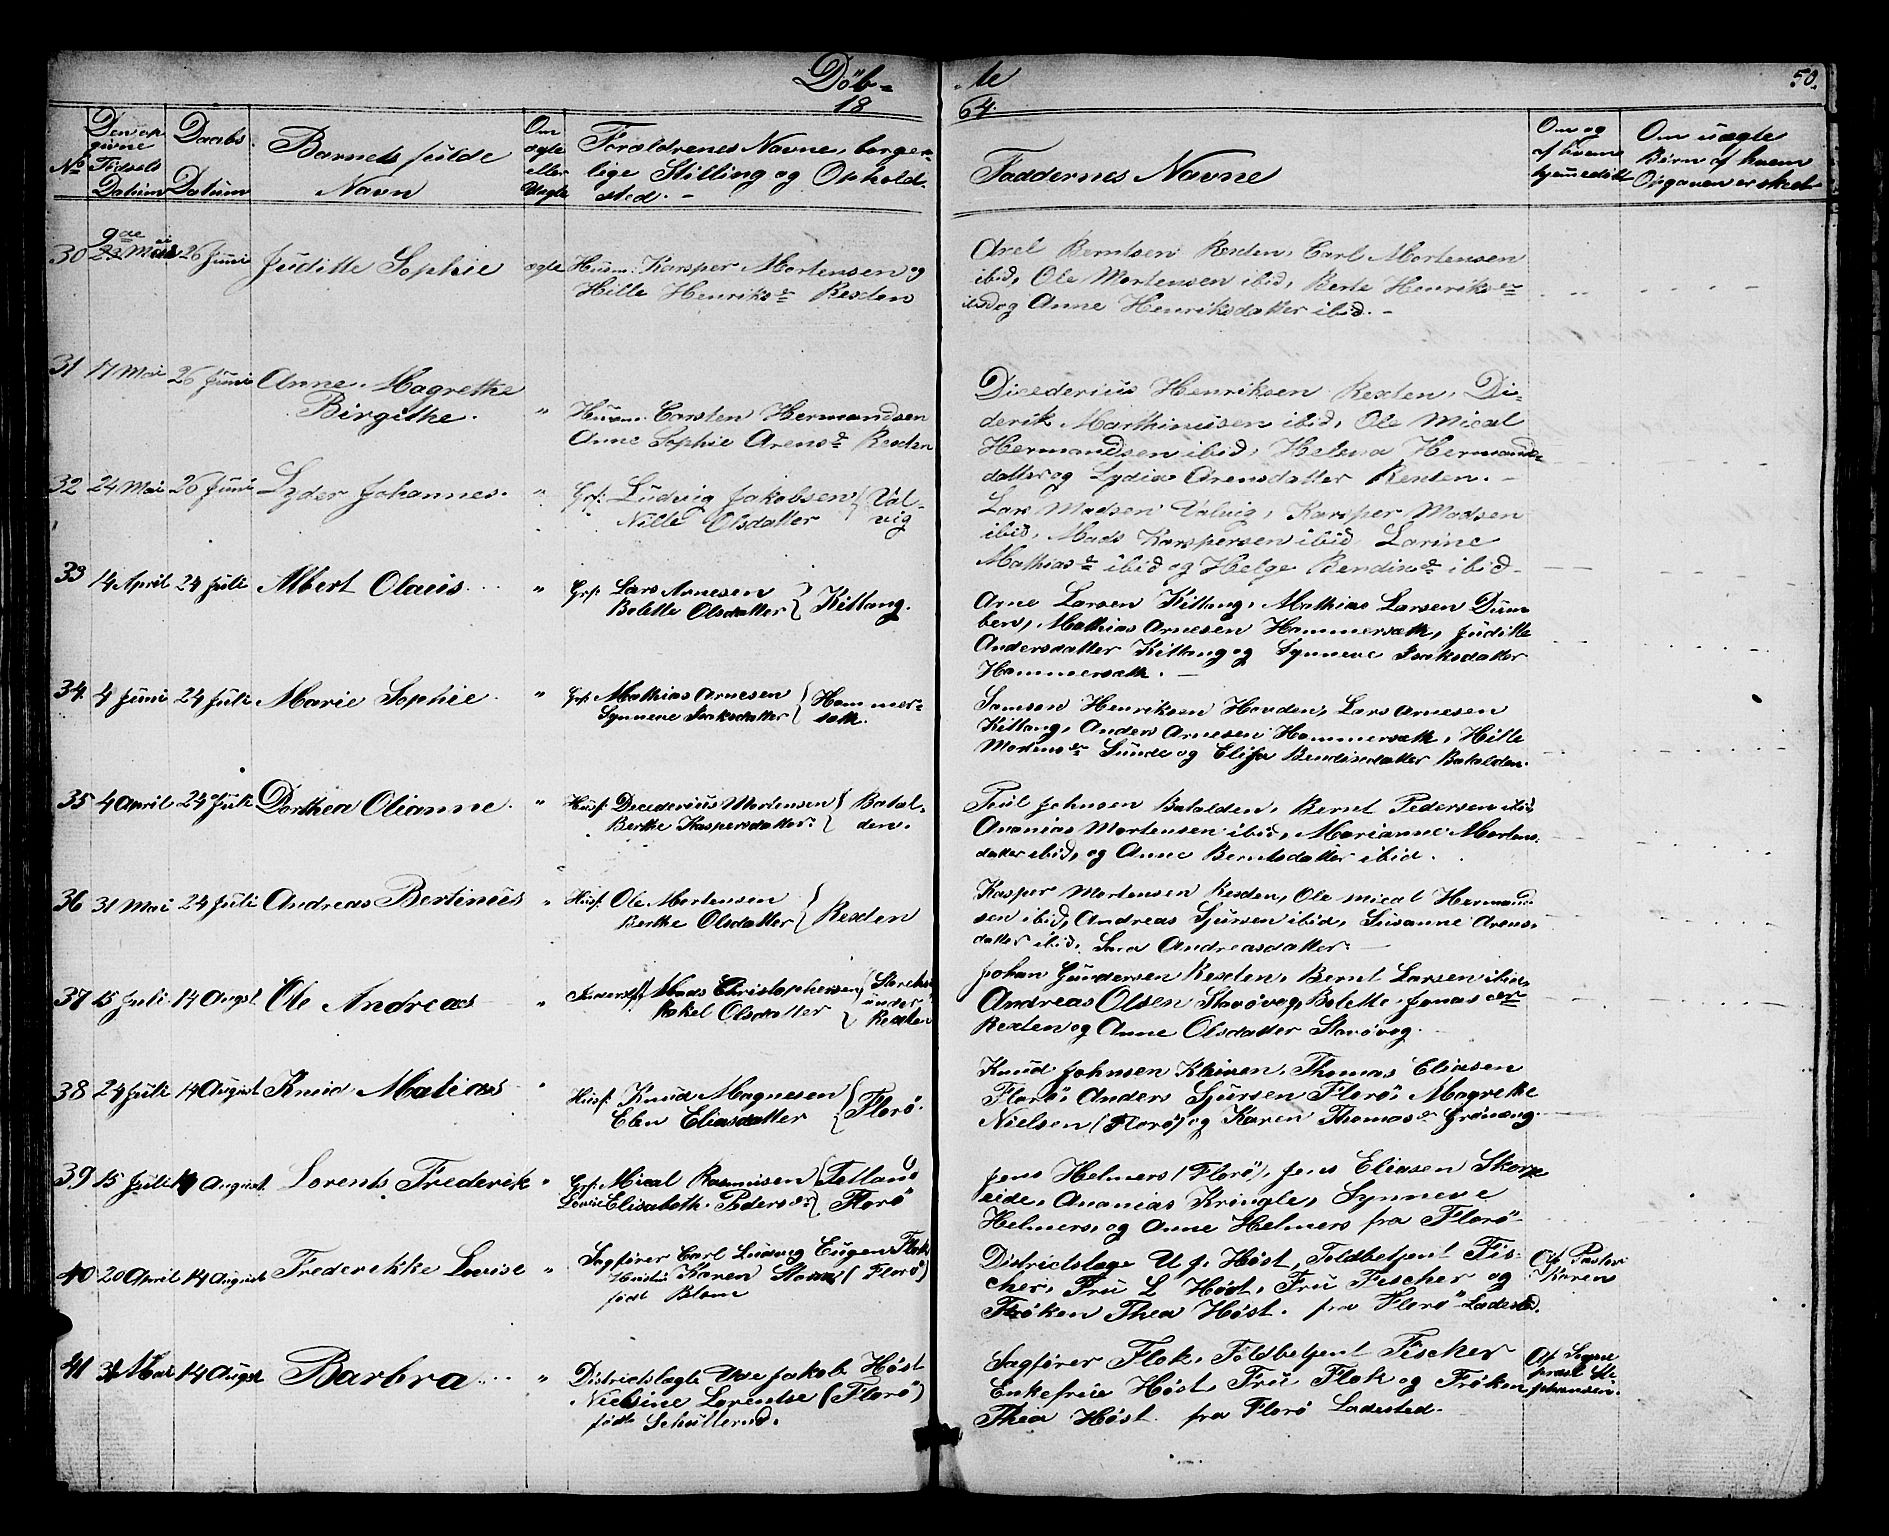 Døb-
te
50.
18
64.
No
Den opgivne Fødsels Datum
Daabs Datum
Barnets fulde Navn
Om ægte eller Uægte
Forældrenes Navne, borgerlige Stilling og Opholdsted. -
Faddernes Navne
Om og af hvem hjemmedøbt
Om uægte Børn af hvem Opgaven er skeet
30 9de Mai 26 Juni Juditte Sophie ægte Husm. Kasper Mortensen og
Hille Henriksdr Rexten
Axel Berntsen Rexten, Carl Mortensen
ibid, Ole Mortensen ibid, Berte Henriksdr
ibid og Anne Henriksdatter ibid. -
31 17 Mai 26 Juni Anne Magrethe
Birgithe. " Husm. Carsten Hermandsen
Anne Sophie Arensd Rexten
Dicederius Henriksen Rexten, Di-
derik Marthinusen ibid, Ole Mical
Hermandsen ibid, Helma Hermands-
datter og Lydia Arensdatter Rexten. -
32 24 Mai 26 Juni Lyder Johannes. " Grf. Ludvig Jakobsen
Nille Olsdatter Val-
vig
Lars Madsen Valvig, Karsper Madsen
ibid, Mads Karspersen ibid, Larine
Mathiasd ibid og Helge Bendixdr ibid.
33 14 April 24 Juli Albert Olaus " Grf. Lars Arnesen
Bolette Olsdatter Kittang.
Arne Larsen Kittang, Mathias Larsen Dum
ben, Mathias Arnesen Hammersæth, Juditte
Andersdatter Kittang og Synneve Isaksdatter
Hammersæth. -
34. 4 Juni 24 Juli Marie Sophie " Grf. Mathias Arnesen
Synneve Isaksdatter Hammer-
sæth.
Samson Henriksen Hovden, Lars Arnesen
Kittang, Anders Arnesen Hammersæth, Hille
Mortensdr Sunde og Elisa Bendixdatter Batalden.
35 4 April 24 Juli Dorthea Olianne. " Husf. Dicederius Mortensen
Berthe Kaspersdatter Batal-
den.
Poul Johnsen Batalden, Bernt Pedersen ibid
Ananias Mortensen ibid, Marianne Mortens-
datter ibid, og Anne Berntsdatter ibid.
36 31 Mai 24 Juli Andreas Bertinus " Husf. Ole Mortensen
Berthe Olsdatter Rexten
Kasper Mortensen Rexten, Ole Mical Hermand-
sen ibid, Andreas Sjursen ibid, Susanne Arens-
datter ibid, Sara Andreasdatter. -
37 15 Juli 14 Augst Ole Andreas " Mads Christophersen
Rakel Olsdatter
under
Rexten
Johan Gundersen Rexten, Bernt Larsen ibid,
Andreas Olsen Starøvog, Bolette Jonasdr
Rexten og Anne Olsdatter Starøvog.
38 24 Juli 14 August Knud Matias " Husf. Knud Magnesen
Elen Eliasdatter Florø.
Knud Johnsen Kleiven, Thomas Eliasen
Florø, Anders Sjursen Florø, Magrethe
Nielsen (Florø) og Karen Thomasdr Grønæng.
39 15 Juli 14 August Lorents Frederik " Grf. Mical Rasmusen
Lovise Elisabeth Pedersdr Tetland
Florø
Jens Helmers (Florø), Jens Eliasen Skorpe
eide, Ananias Kringle, Synneve
Helmers, og Anne Helmers fra Florø
40 20 April 14 August Frederikke Lovise " Sagfører Carl Ludvig Eugen Flok
Hustru Karen (Florø)
født Blom
Districtslæge U. J. Høst, Toldbetjent Fis-
cher, Fru L Høst, Fru Fischer og
Frøken Thea Høst. fra Florø Ladested.
Af Pastor
Koren
41 31 Mai 14 Augst Barbra " Districtslægte Uve Jakob Høst
Nielsine Lorentse (Florø)
født
Sagfører Flok, Toldbetjent Fischer
Enkefrue Høst, Fru Flok og Frøken
Thea Høst fra Florø Ladested.
Af Sogne
præst Ste
phansen.